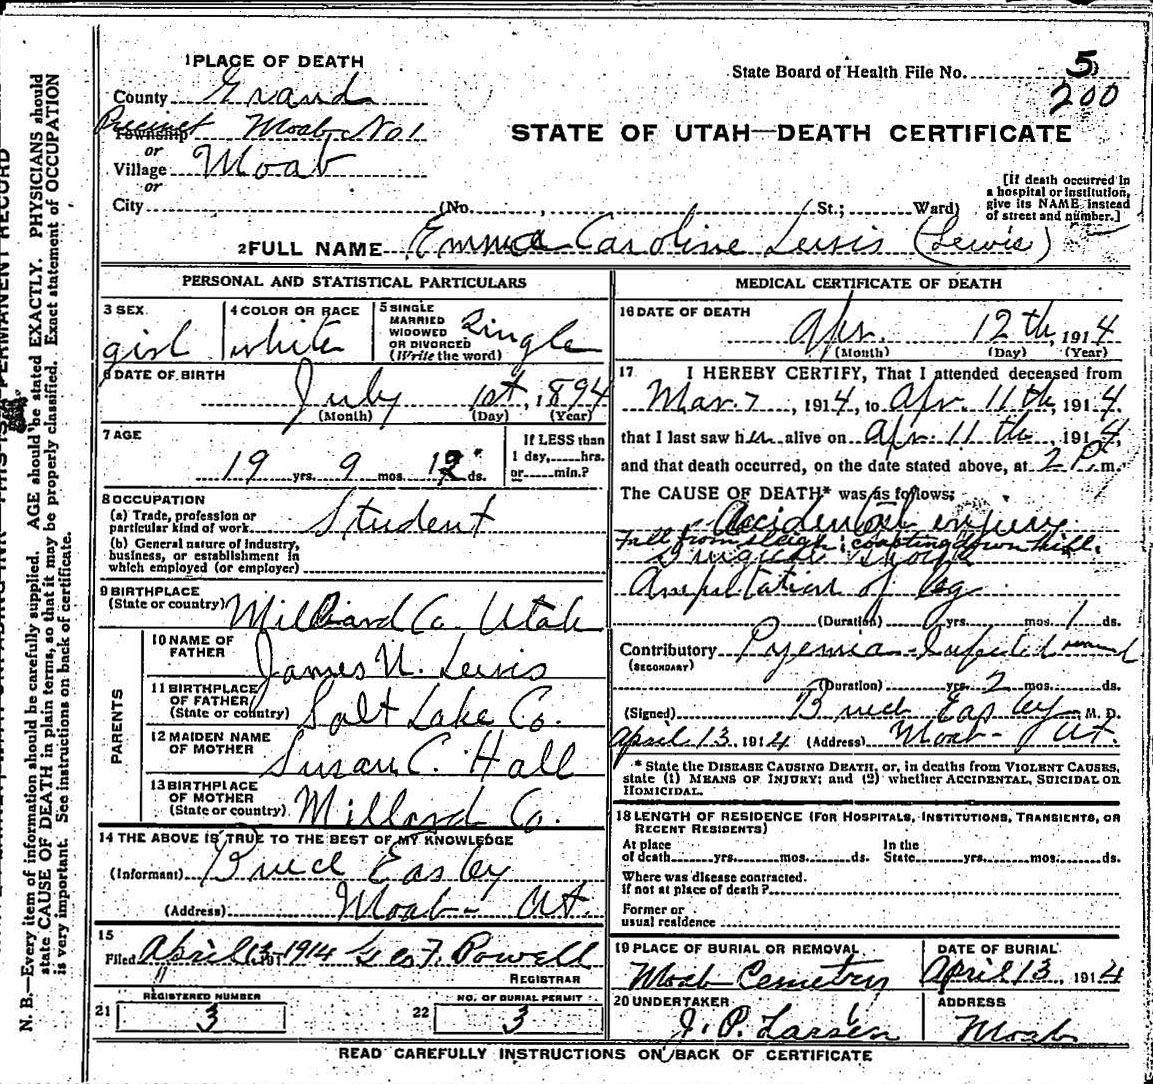 1 PLACE OF DEATH
State Board of Health File No. 5
200
County Grand
Precinct Moab No 1
Township
or
Village Moab
or
City (No. , St.; Ward)
STATE OF UTAH—DEATH CERTIFICATE
[If death occurred in
a hospital or institution,
give its NAME instead
of street and number.]
2 FULL NAME Emma Caroline Lewis (Lewis)
PERSONAL AND STATISTICAL PARTICULARS
3 SEX
girl
4 COLOR OR RACE
white
5 SINGLE
MARRIED
WIDOWED
OR DIVORCED
(Write the word)
Single
6 DATE OF BIRTH
July 1st, 1894
(Month) (Day) (Year)
7 AGE
19 yrs. 9 mos. 12 ds.
If LESS than
1 day, hrs.
or min.?
8 OCCUPATION
(a) Trade, profession or
particular kind of work Student
(b) General nature of industry,
business, or establishment in
which employed (or employer)
9 BIRTHPLACE
(State or country) Millard Co. Utah
PARENTS
10 NAME OF
FATHER
James N. Lewis
11 BIRTHPLACE
OF FATHER
(State or country) Salt Lake Co.
12 MAIDEN NAME
OF MOTHER
Susan C. Hall
13 BIRTHPLACE
OF MOTHER
(State or country) Millard Co.
14 THE ABOVE IS TRUE TO THE BEST OF MY KNOWLEDGE
(Informant) Bruce Easley
(Address) Moab - Ut.
15
Filed April 13, 1914 Geo. F. Powell
REGISTRAR
21 REGISTERED NUMBER
3
22 NO. OF BURIAL PERMIT
3
MEDICAL CERTIFICATE OF DEATH
16 DATE OF DEATH
Apr. 12th, 1914
(Month) (Day) (Year)
17 I HEREBY CERTIFY, That I attended deceased from
Mar. 7, 1914, to Apr. 11th, 1914
that I last saw her alive on Apr. 11th, 1914,
and that death occurred, on the date stated above, at 2 P. m.
The CAUSE OF DEATH* was as follows:
Accidental injury
Fall from sleigh; coasting down hill.
Surgical shock
Amputation of leg
(Duration) 0 yrs. mos. 1 ds.
Contributory Pyemia - Infected wound
(SECONDARY)
(Duration) yrs. 2 mos. ds.
(Signed) Bruce Easley M. D.
April 13, 1914 (Address) Moab - Ut.
* State the DISEASE CAUSING DEATH, or, in deaths from VIOLENT CAUSES,
state (1) MEANS OF INJURY; and (2) whether ACCIDENTAL, SUICIDAL OR
HOMICIDAL.
18 LENGTH OF RESIDENCE (FOR HOSPITALS, INSTITUTIONS, TRANSIENTS, OR
RECENT RESIDENTS)
At place
of death yrs. mos. ds.
In the
State yrs. mos. ds.
Where was disease contracted.
if not at place of death?
Former or
usual residence
19 PLACE OF BURIAL OR REMOVAL
Moab Cemetery
DATE OF BURIAL
April 13, 1914
20 UNDERTAKER
J. P. Larsen
ADDRESS
Moab
READ CAREFULLY INSTRUCTIONS ON BACK OF CERTIFICATE
N. B.—Every item of information should be carefully supplied. AGE should be stated EXACTLY. PHYSICIANS should
state CAUSE OF DEATH in plain terms, so that it may be properly classified. Exact statement of OCCUPATION
is very important. See instructions on back of certificate.